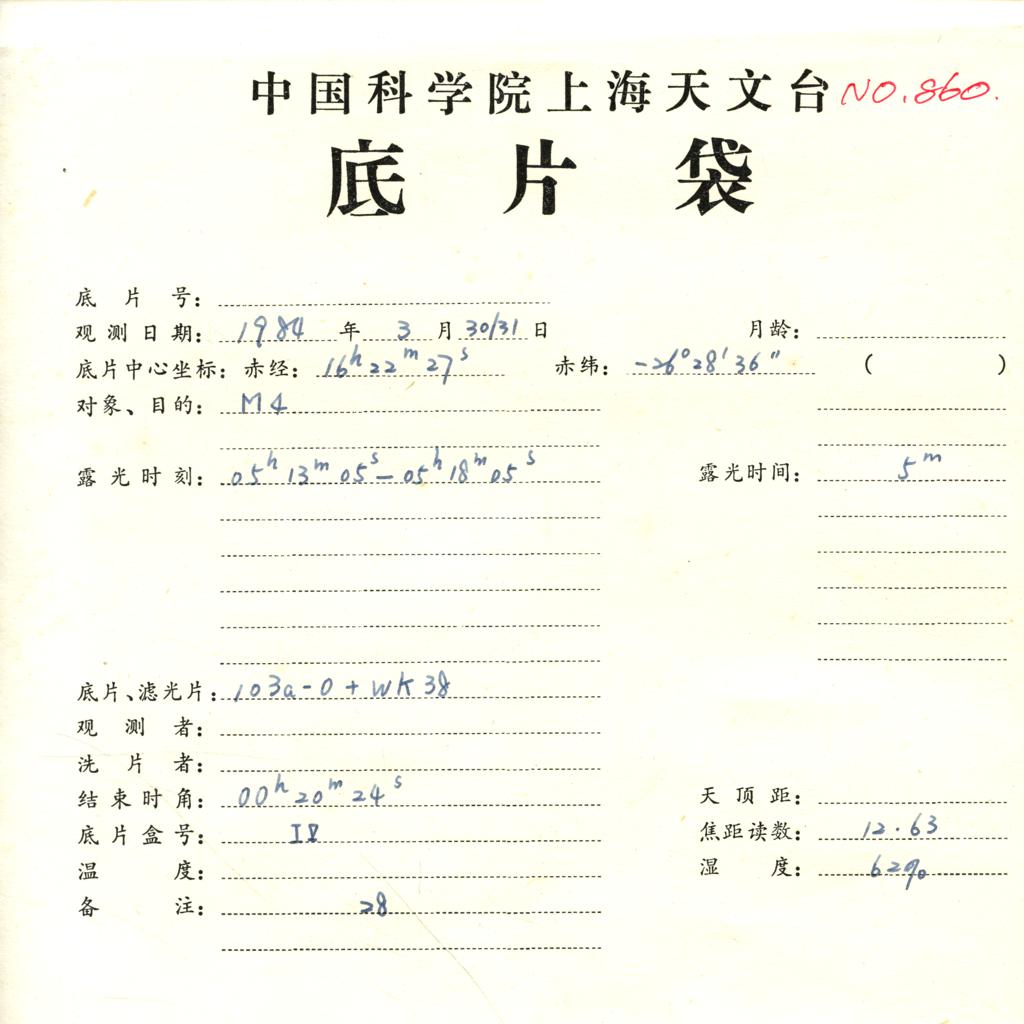 中国科学院上海天文台 NO.860.
底片袋
底片号：
观测日期：1984年3月30/31日 月龄：
底片中心坐标：赤经：16h22m27s 赤纬：-26°28′36″ （ ）
对象、目的：M4
露光时刻：05h13m05s—05h18m05s 露光时间：5m
底片、滤光片：103a-O+WK38
观测者：
洗片者：
结束时角：00h20m24s 天顶距：
底片盒号：IV 焦距读数：12.63
温度： 湿度：62%
备注：28